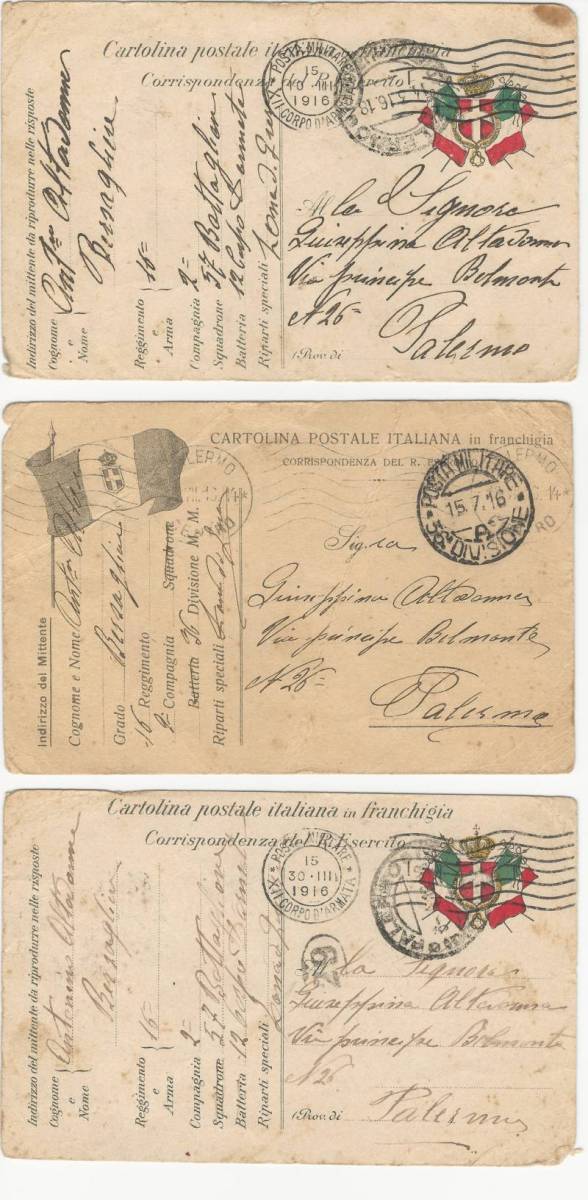 Cartolina postale italiana in franchigia
Corrispondenza del R. Esercito
POSTA MILITARE
15
10 · III
1916
XII CORPO D'ARMATA
Indirizzo del mittente da riprodurre nelle risposte
Cognome e Nome
Altadonna
Bersagliere
Reggimento e Arma
16=
Compagnia 2=
Squadrone 57 Battaglione
Batteria 12 Corpo
Riparti speciali Zona di
Alla Signora
Giuseppina Altadonna
Via principe Belmonte
N 26=
(Prov. di
Palermo
CARTOLINA POSTALE ITALIANA in franchigia
CORRISPONDENZA DEL R.
POSTA MILITARE
15.7.16
A
36ª DIVISIONE
PALERMO
Indirizzo del Mittente
Cognome e Nome
Grado Bersagliere
16 Reggimento
9= Compagnia Squadrone
Batteria 36 Divisione M. M.
Riparti speciali
Sig.ra
Giuseppina Altadonna
Via principe Belmonte
N 26=
Palermo
Cartolina postale italiana in franchigia
Corrispondenza del R. Esercito
POSTA MILITARE
15
30 · III
1916
XII CORPO D'ARMATA
Indirizzo del mittente da riprodurre nelle risposte
Cognome e Nome
Antonino Altadonna
Bersagliere
Reggimento e Arma
16=
Compagnia 2=
Squadrone 57 Battaglione
Batteria 12 Corpo
Riparti speciali
Alla Signora
Giuseppina Altadonna
Via principe Belmonte
N 26
(Prov. di
Palermo